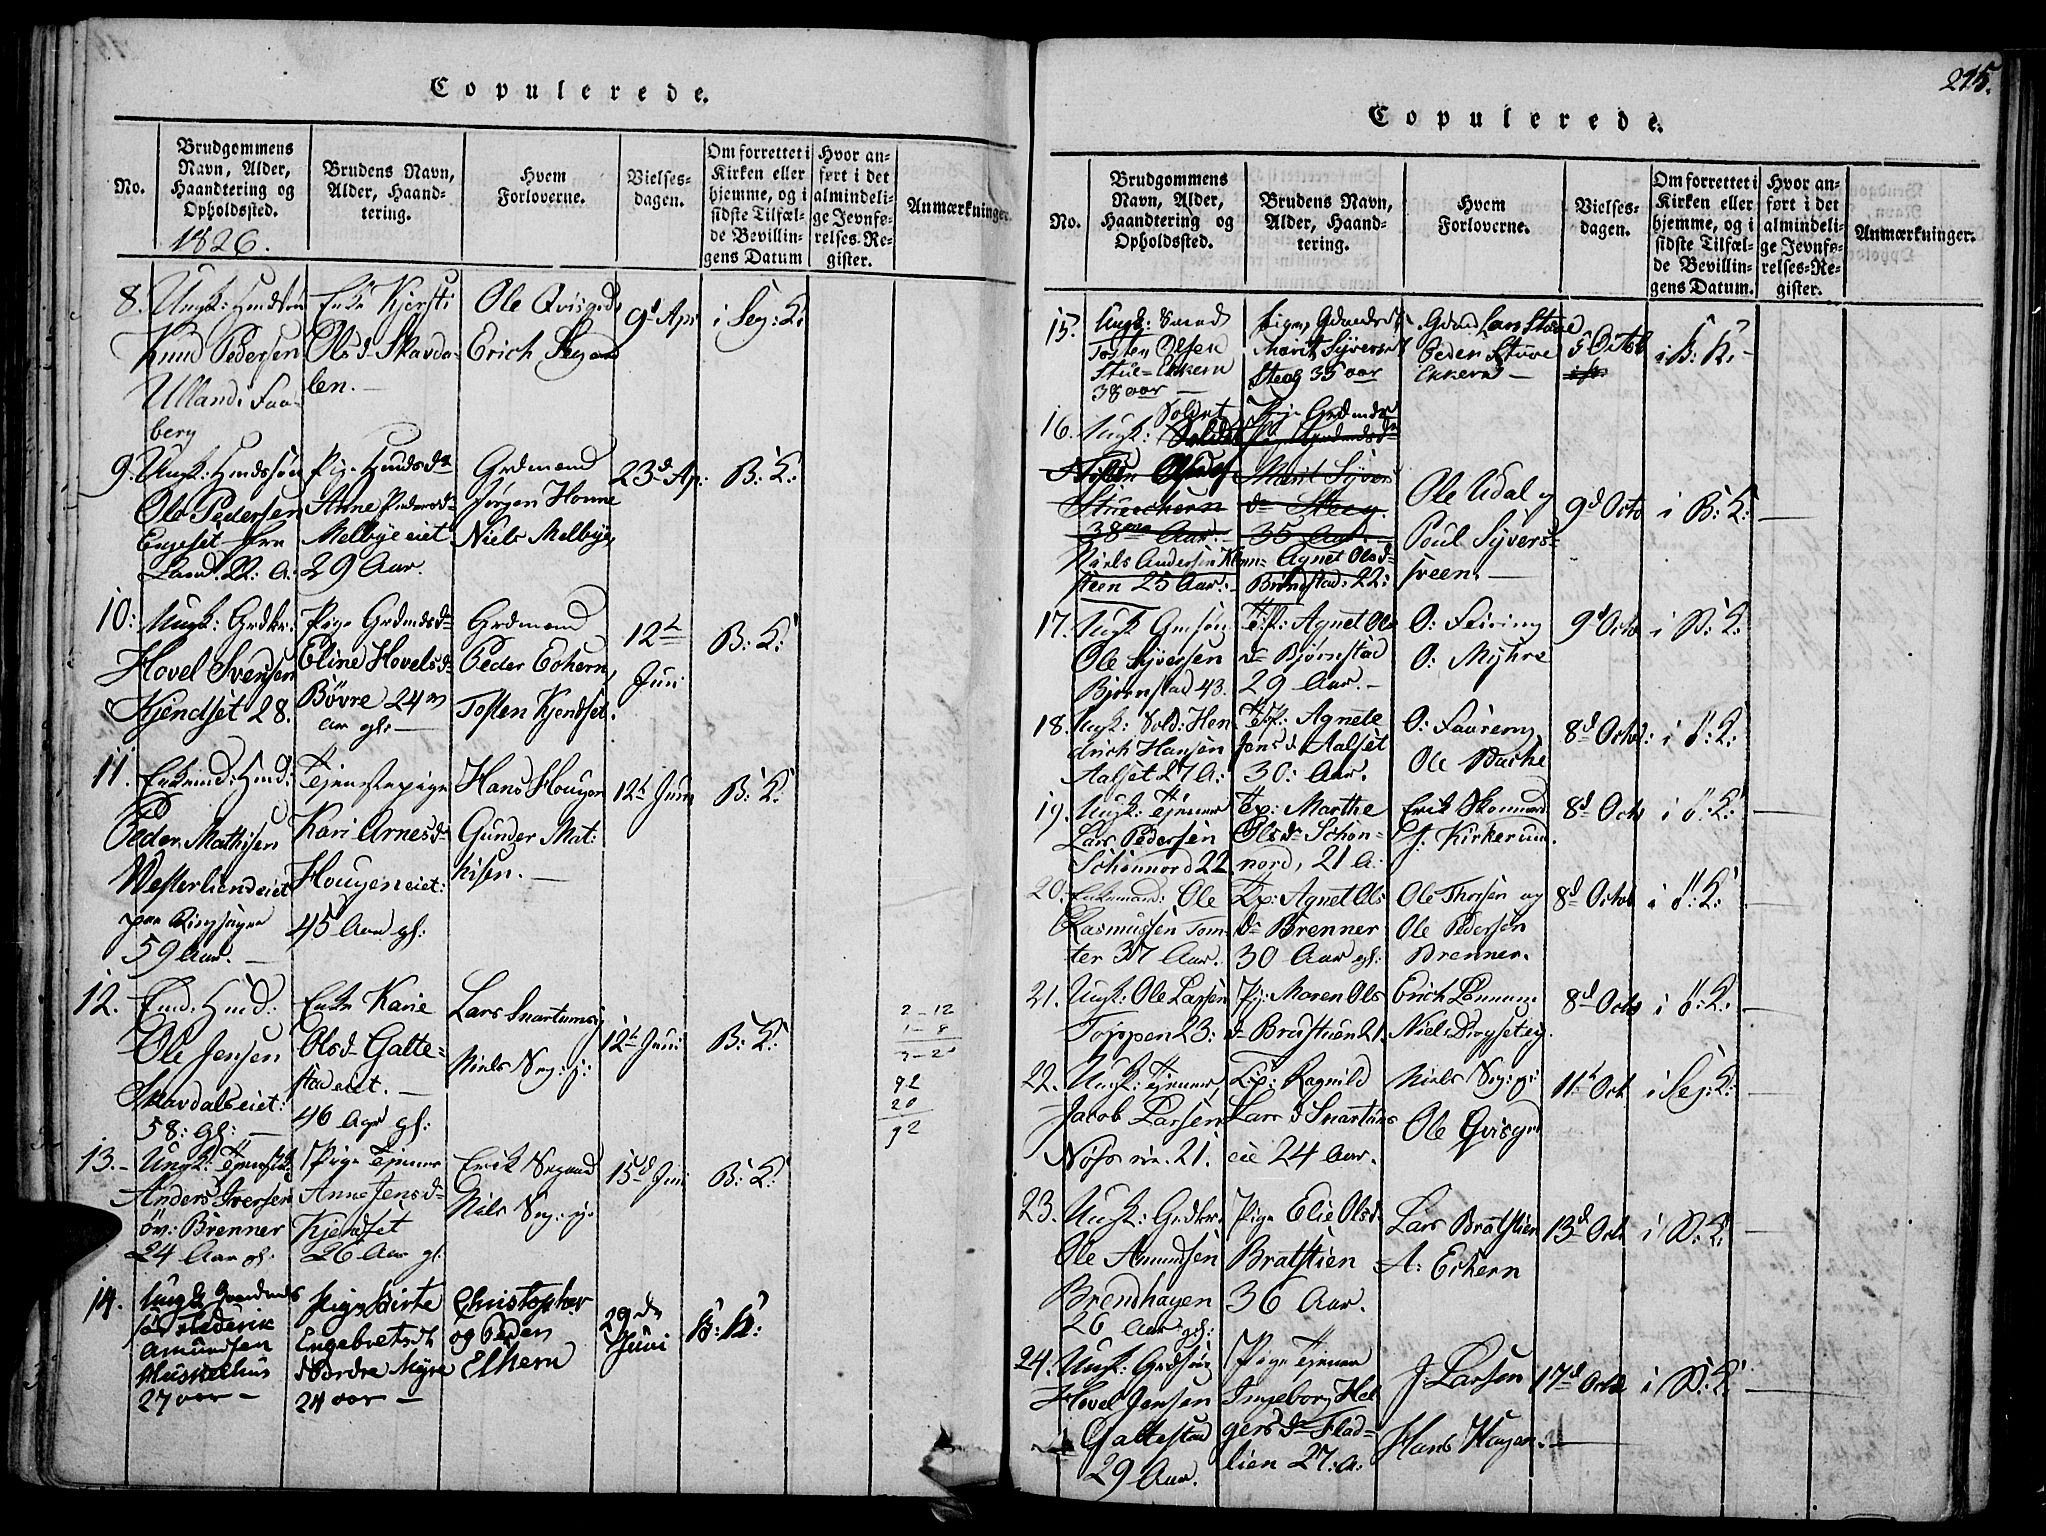 Copulerede.
No.
Brudgommens
Navn, Alder,
Haandtering og
Opholdssted.
1826.
Brudens Navn,
Alder, Haand-
tering.
Hvem
Forloverne.
Vielses-
dagen.
Om forrettet i
Kirken eller
hjemme, og i
sidste Tilfæl-
de Bevillin-
gens Datum
Hvor an-
ført i det
almindeli-
ge Jevnfø-
relses-Re-
gister.
Anmærkninger.
8.
Knud Pedersen
Ulland i Faa-
berg
Enke Kjersti
Olsd. Skavda-
len.
Ole Qvisgrd
Erich Segaard
9d Apr
i Seg: K:
9.
Ole Pedersen
Engeset fra
Land. 22: A:
Pige
Anne Pedersd
Melbye eiet
29 Aar.
Grdmand
Jørgen Honne
Niels Melbye,
23d Ap:
B: K:
10:
Ungk: Grdkr.
Hovel Svensen
Kjendset 28.
Pige Grdmdsd
Eline Hovelsd
Bövre 24
aar gl:
Grdmand
Peder Eehern,
Tosten Kjendset.
12t
Juni
B: K:
11.
Peder Mathisen
Vesterliendeiet
paa Ringsager
59 Aar.
Tjenestepige
Kari Arnesd
Hougen eiet:
45 Aar gl:
Hans Hougen
Gunder Mat:
hisen.
12t Juni
B: K:
12.
Ole Jensen
Skavdalseiet:
58: gl:
Enke Karie
Olsd Galte-
stad eiet.
46 Aar gl:
Lars Snartum
Niels Seg: j:
12t Juni
B: K:
2-12
92
20
92
13.
Anders Iversen
öv: Brenner
24 Aar gl:
Pige Tjener
Anne Jensd
Kjendset
26 Aar gl:
Erik Segaard
Niels Seg: y.
15d Juni
B: K:
14.
Frederik
Amundsen
Muskelhus
27 aar
Pige Birte
Engebretsdt
Nordre Myre
24 aar
Christopher
og Peder
Elkern
29de
Juni
B: K:
215.
Copulerede.
No.
Brudgommens
Navn, Alder,
Haandtering og
Opholdssted.
Brudens Navn,
Alder, Haand-
tering.
Hvem
Forloverne.
Vielses-
dagen.
Om forrettet i
Kirken eller
hjemme, og i
sidste Tilfæl-
de Bevillin-
gens Datum.
Hvor an-
ført i det
almindeli-
ge Jevnfø-
relses-Re-
gister.
Anmærkninger.
15.
Tosten Olsen
Stue-Ekkern
38 aar
Marit Syversd
Steeg 35 aar
Lars Stuve
Peder Stuve
Ekkern
5 Octob
i B: K:
16.
Ungk: Soldat
Tosten Olsen
38 Aar.
Niels Andersen Klem-
steen 25 Aar:
Pige Grdmdsd
Marit Syvers
d Steeg.
35 Aar.
Agnet Olsd
Brendstad: 22:
Ole Udal og
Poul Syvers-
sveen.
9d Octo
i B: K:
17.
Ole Syversen
Bjørnstad 43.
T:P: Agnet Ols
d Bjørnstad
29 Aar.
O: Feiring
O: Myhre
9d Octo
18.
Ungk: Sold: Hen
drich Hansen
Aalset 27 A:
T:P: Agnete
Jens d Aalset
30: Aar.
Ole
8d Octo:
19.
Ungk: Tjener
Lars Pedersen
Schønnord 22
T:p: Marthe
Olsd Schon-
nord, 21 A:
Erik
Kirkerud.
8d Octo
20.
Enkemand: Ole
Rasmussen Tom-
ter 37 Aar.
T:p: Agnet Ols
d Brenner
30 Aar gl:
Ole Thorsen og
Ole Pedersen
Brenner.
8d Octo
21.
Ungk: Ole Larsen
Toppen 23:
P: Maren Ols
d Bratstuen 21.
Erich
Niels
8d Octo
22.
Ungk: Tjener
Jacob Larsen
21.
T:p: Ragnild
Lars d Snartums
eie 24 Aar.
Niels Seg: y:
Ole Qvisgrd
11t Oct
i Seg: K:
23.
Ungk: Grdkr.
Ole Amundsen
Brendhagen
26 Aar gl:
Pige Elie Olsd
Bratstien
36 Aar.
Lars Bratstien
A: Eckern
13d Oct
24.
Ungk: Grdsøn
Hovel Jensen
Galtestad
29 Aar.
Pige Tjener
Ingeborg Hel
gersd Flad-
lien 27: A:
J: Larsen
Hans Hagen.
17d Octo